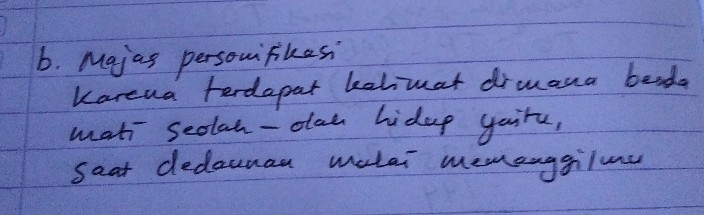 b. Majas personifikasi
Karena terdapat kalimat dimana benda
mati seolah-olah hidup yaitu,
saat dedaunan mulai memanggilmu